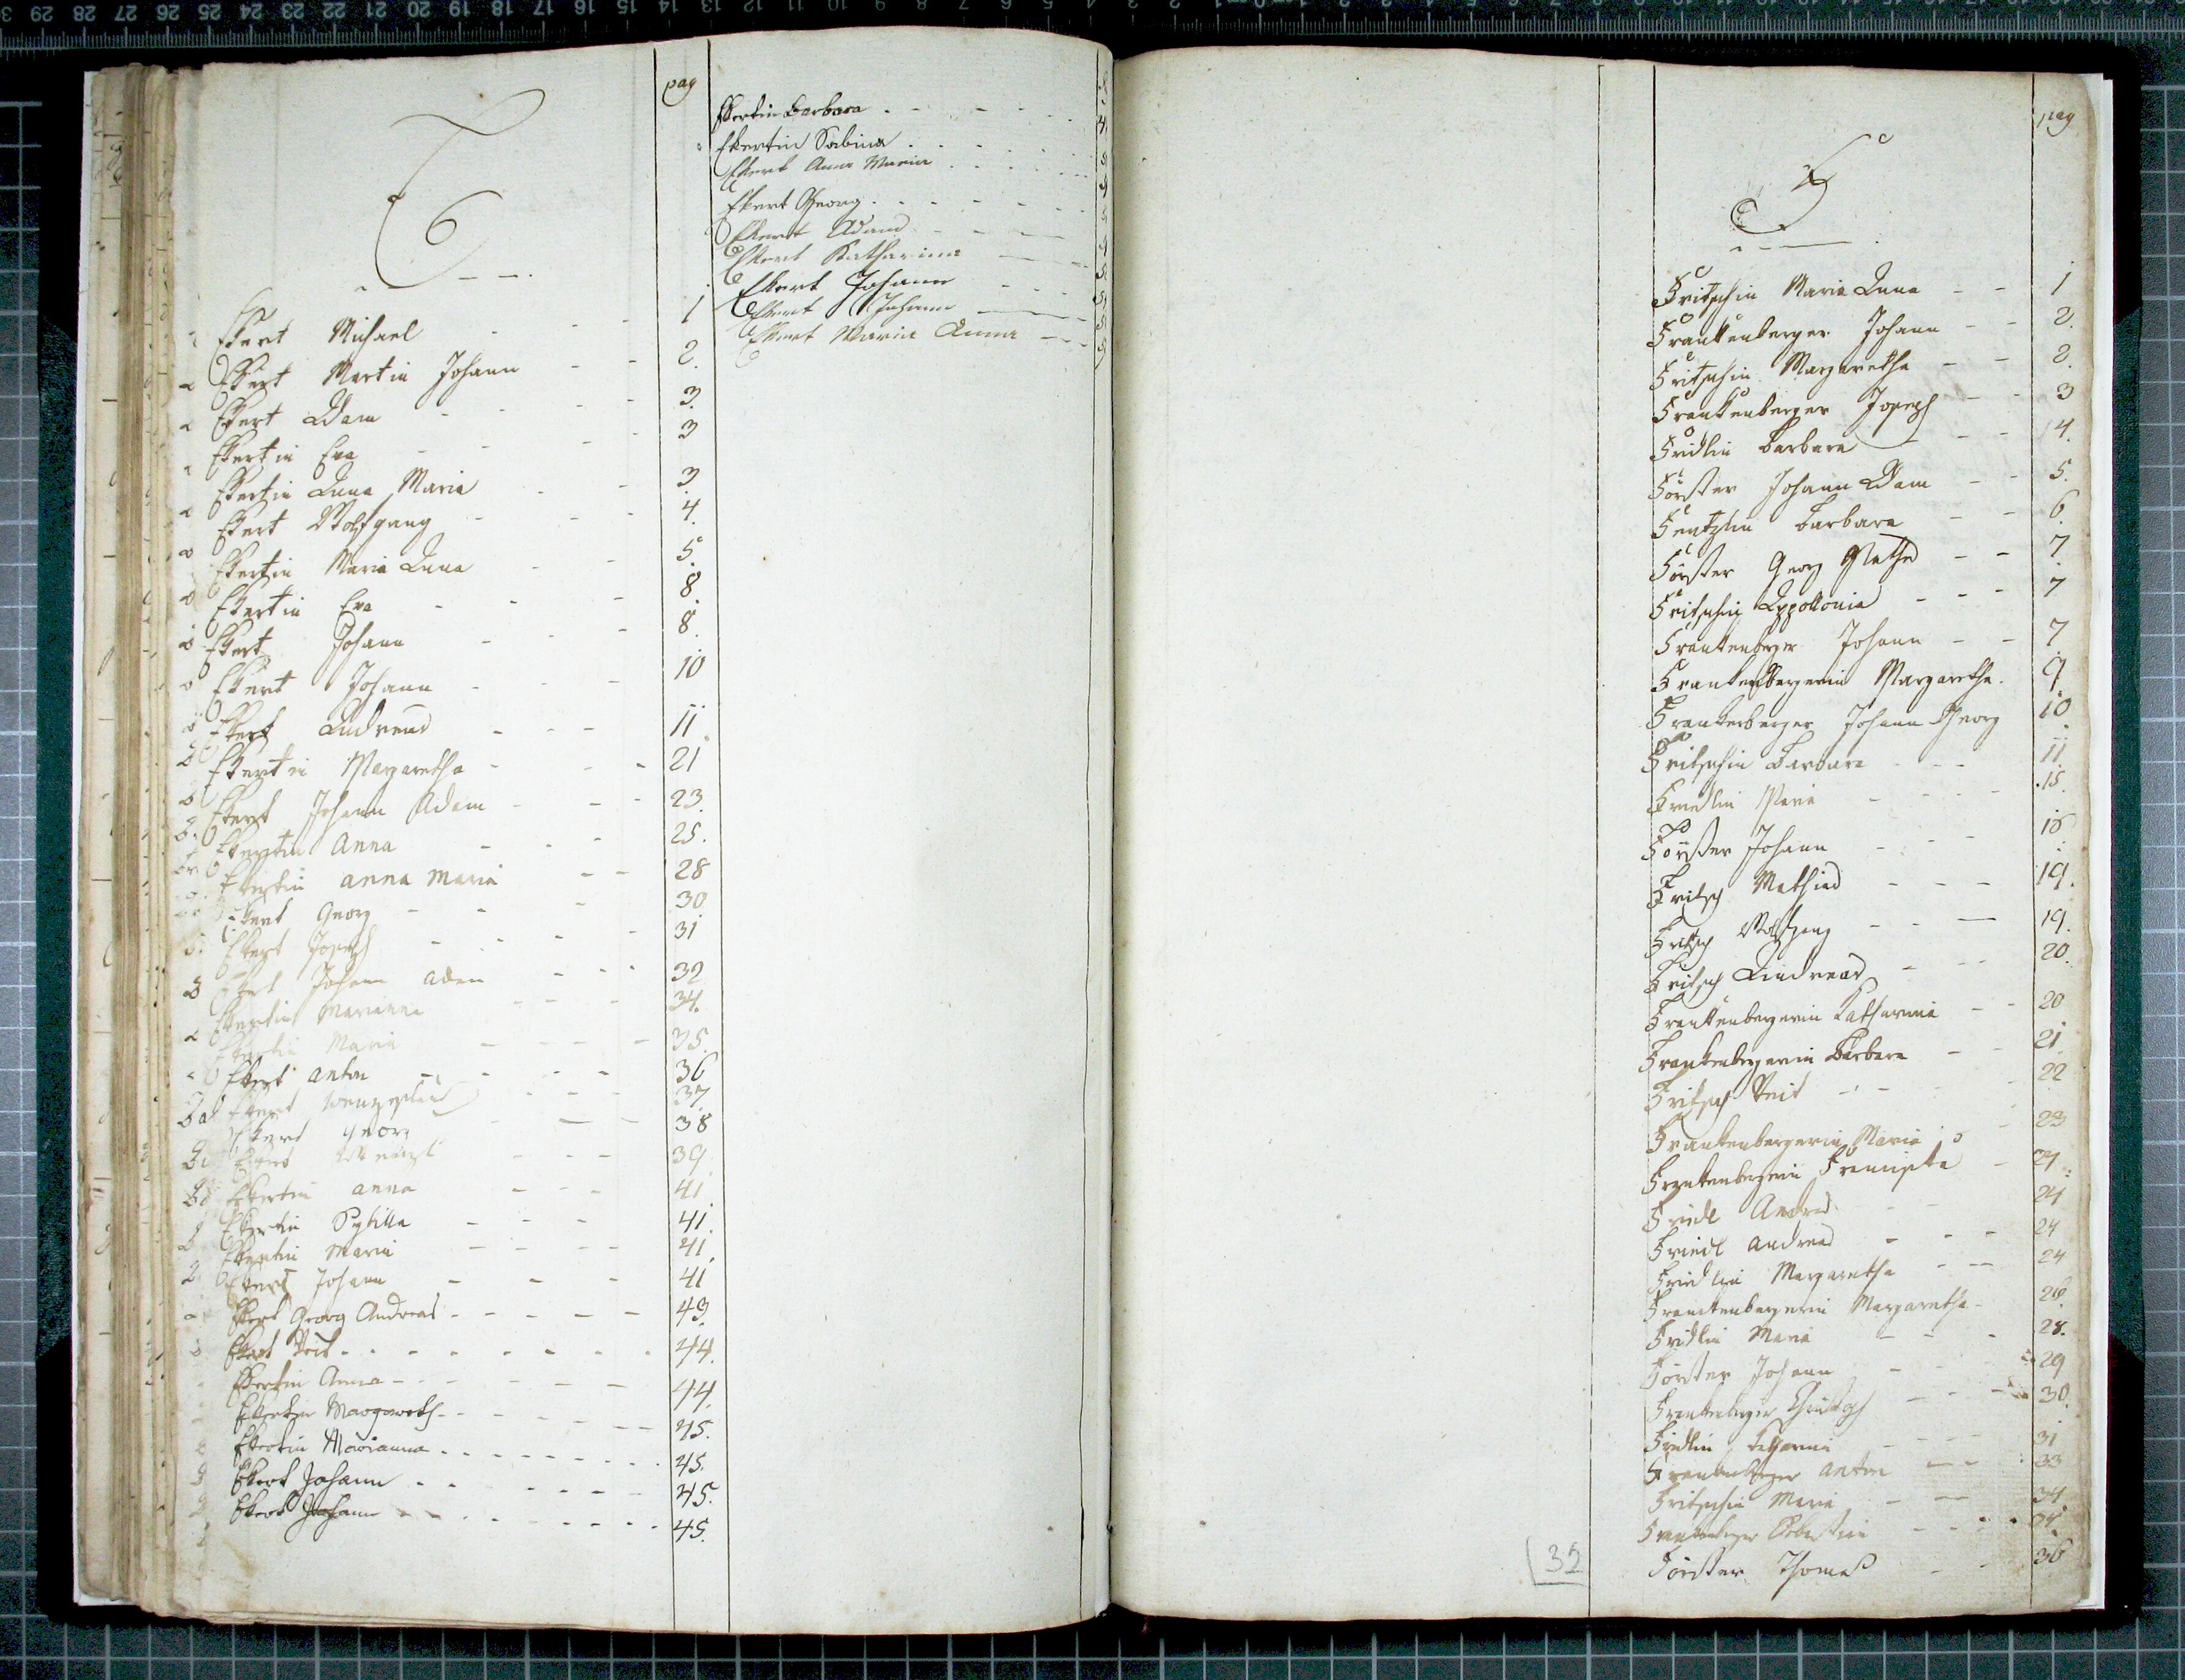 pag
E
Ekert Michael 1
Ekert Martin Johann 2.
Ekert Adam 3.
Ekertin Eva 3
Ekertin Anna Maria 3.
Ekert Wolfgang 4.
Ekertin Maria Anna 5.
Ekertin Eva 8
Ekert Johann 8.
Ekert Johann 10
Ekert Andreas 11.
Ekertin Margaretha 21
Ekert Johann Adam 23.
Ekertin Anna 25.
Ekertin Anna Maria 28
Ekert Georg 30
Ekert Joseph 31
Ekert Johann Adam 32
Ekertin Marianna 34.
Ekertin Maria 35.
Ekert Anton 36
Ekert Wenzeslaus 37.
Ekert Georg 38
Ekert Wenzl 39
Ekertin Anna 41
Ekertin Sybilla 41.
Ekertin Maria 41.
Ekert Johann 41
Ekert Georg Andreas 43.
Ekert Veit 44.
Ekertin Anna 44.
Ekertin Margareth 45.
Ekertin Marianna 45.
Ekert Johann 45.
Ekert Johann 45.
Ekertin Barbara
Ekertin Sabina
Ekert Anna Maria
Ekert Georg
Ekert Adam
Ekert Katharina
Ekert Johann
Ekert Johann
Ekert Maria Anna
pag
F
Fritschin Maria Anna 1
Frankenberger Johann 2.
Fritschin Margaretha 2.
Frankenberger Joseph 3
Fridlin Barbara 4.
Förster Johann Adam 5.
Barbara 6
Förster Georg 7.
Fritschin Appollonia 7
Frankenberger Johann 7
Frankenbergerin Margaretha 9
Frankenberger Johann Georg 10
Fritschin Barbara 11.
Friedlin Maria 15.
Förster Johann 18
Fritsch Mathias 19.
Fritsch Wolfgang 19.
Fritsch Andreas 20.
Frankenbergerin Katharina 20
Frankenbergerin Barbara 21
Fritsch Veit 22
Frankenbergerin Maria 23
Frankenbergerin Francisca 24
Friedl Andreas 24
Friedl Andreas 24
Friedlin Margaretha 24
Frankenbergerin Margaretha 26.
Fridlin Maria 28.
Förster Johann 29
Frankenberger Christoph 30.
Fridlin 31
Frankenberger Anton 33
Fritschin Maria 34
Frankenberger
Förster Thomas 36
32